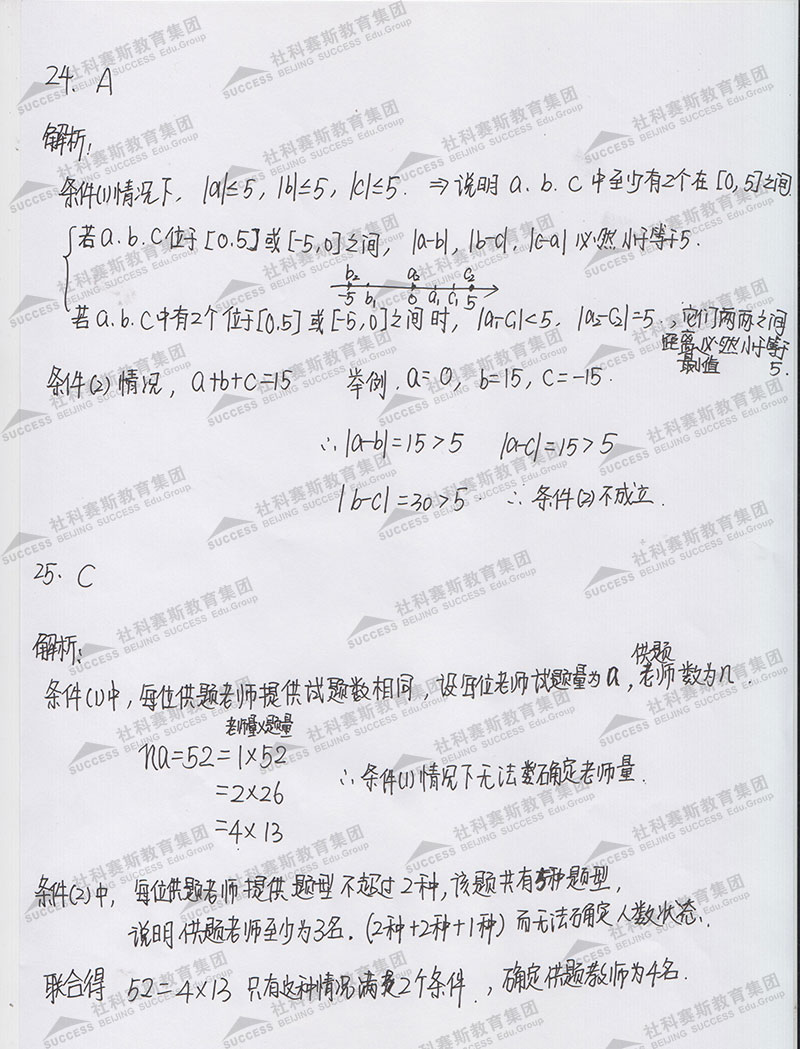 24. A
解析:
条件(1)情况下, |a|≤5, |b|≤5, |c|≤5. ⇒说明 a. b. c 中至少有2个在 [0,5]之间.
若a.b.c位于[0.5]或[-5,0]之间, |a-b|, |b-c|, |c-a| 必然小于等于5.
b₂ a₂ c₂
-5 b₁ 0 a₁ c₁ 5
若a.b.c中有2个位于[0.5]或[-5,0]之间时, |a₁-c₁|<5. |a₂-c₂|=5., 它们两两之间
距离必然小于等于
最小值 5.
条件(2)情况, a+b+c=15 举例. a=0, b=15, c=-15.
∴|a-b|=15>5 |a-c|=15>5
|b-c|=30>5. ∴条件(2)不成立.
25. C
解析:
供题
条件(1)中,每位供题老师提供试题数相同,设每位老师试题量为a,老师数为n.
老师量×题量
na=52=1×52
=2×26
∴条件(1)情况下无法确定老师量.
=4×13
条件(2)中, 每位供题老师提供题型不超过2种,该题共有5种题型,
说明供题老师至少为3名. (2种+2种+1种) 而无法确定人数状态.
联合得 52=4×13 只有这种情况满足2个条件, 确定供题教师为4名.
社科赛斯教育集团
SUCCESS BEIJING SUCCESS Edu.Group